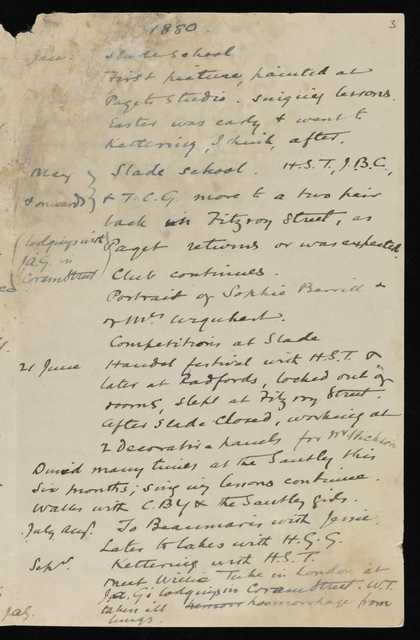 3
1880.
Jan. Slade School
First picture, painted at
Pagets Studio. Singing lessons.
Easter was early & went to
Kettering, I think, after.
May & onwards Slade School. H.S.T., J.B.C.,
& T.C.G. move to a two pair
back in Fitzroy Street, as
(Lodgings with J.A.G. in Coram Street) Paget returns or was expected.
Club continues.
Portrait of Sophie Berrill &
of Mrs Urquhart.
Competitions at Slade
21 June Handel festival with H.S.T. &
later at Radfords, locked out of
rooms, slept at Fitzroy Street.
After Slade closed, working at
2 Decorative panels for Mr
Dined many times at the Santley this
six months; singing lessons continue.
Walks with C.B.Y & the Santley girls.
July Aug. To Beaumaris with Jessie.
Later to Lakes with H.G.G.
Sep. Kettering with H.S.T.
Meet Willie Tuke in London at
J.A.G's lodgings in Coram Street. W.T.
taken ill haemorrhage from
lungs.
J.A.G.